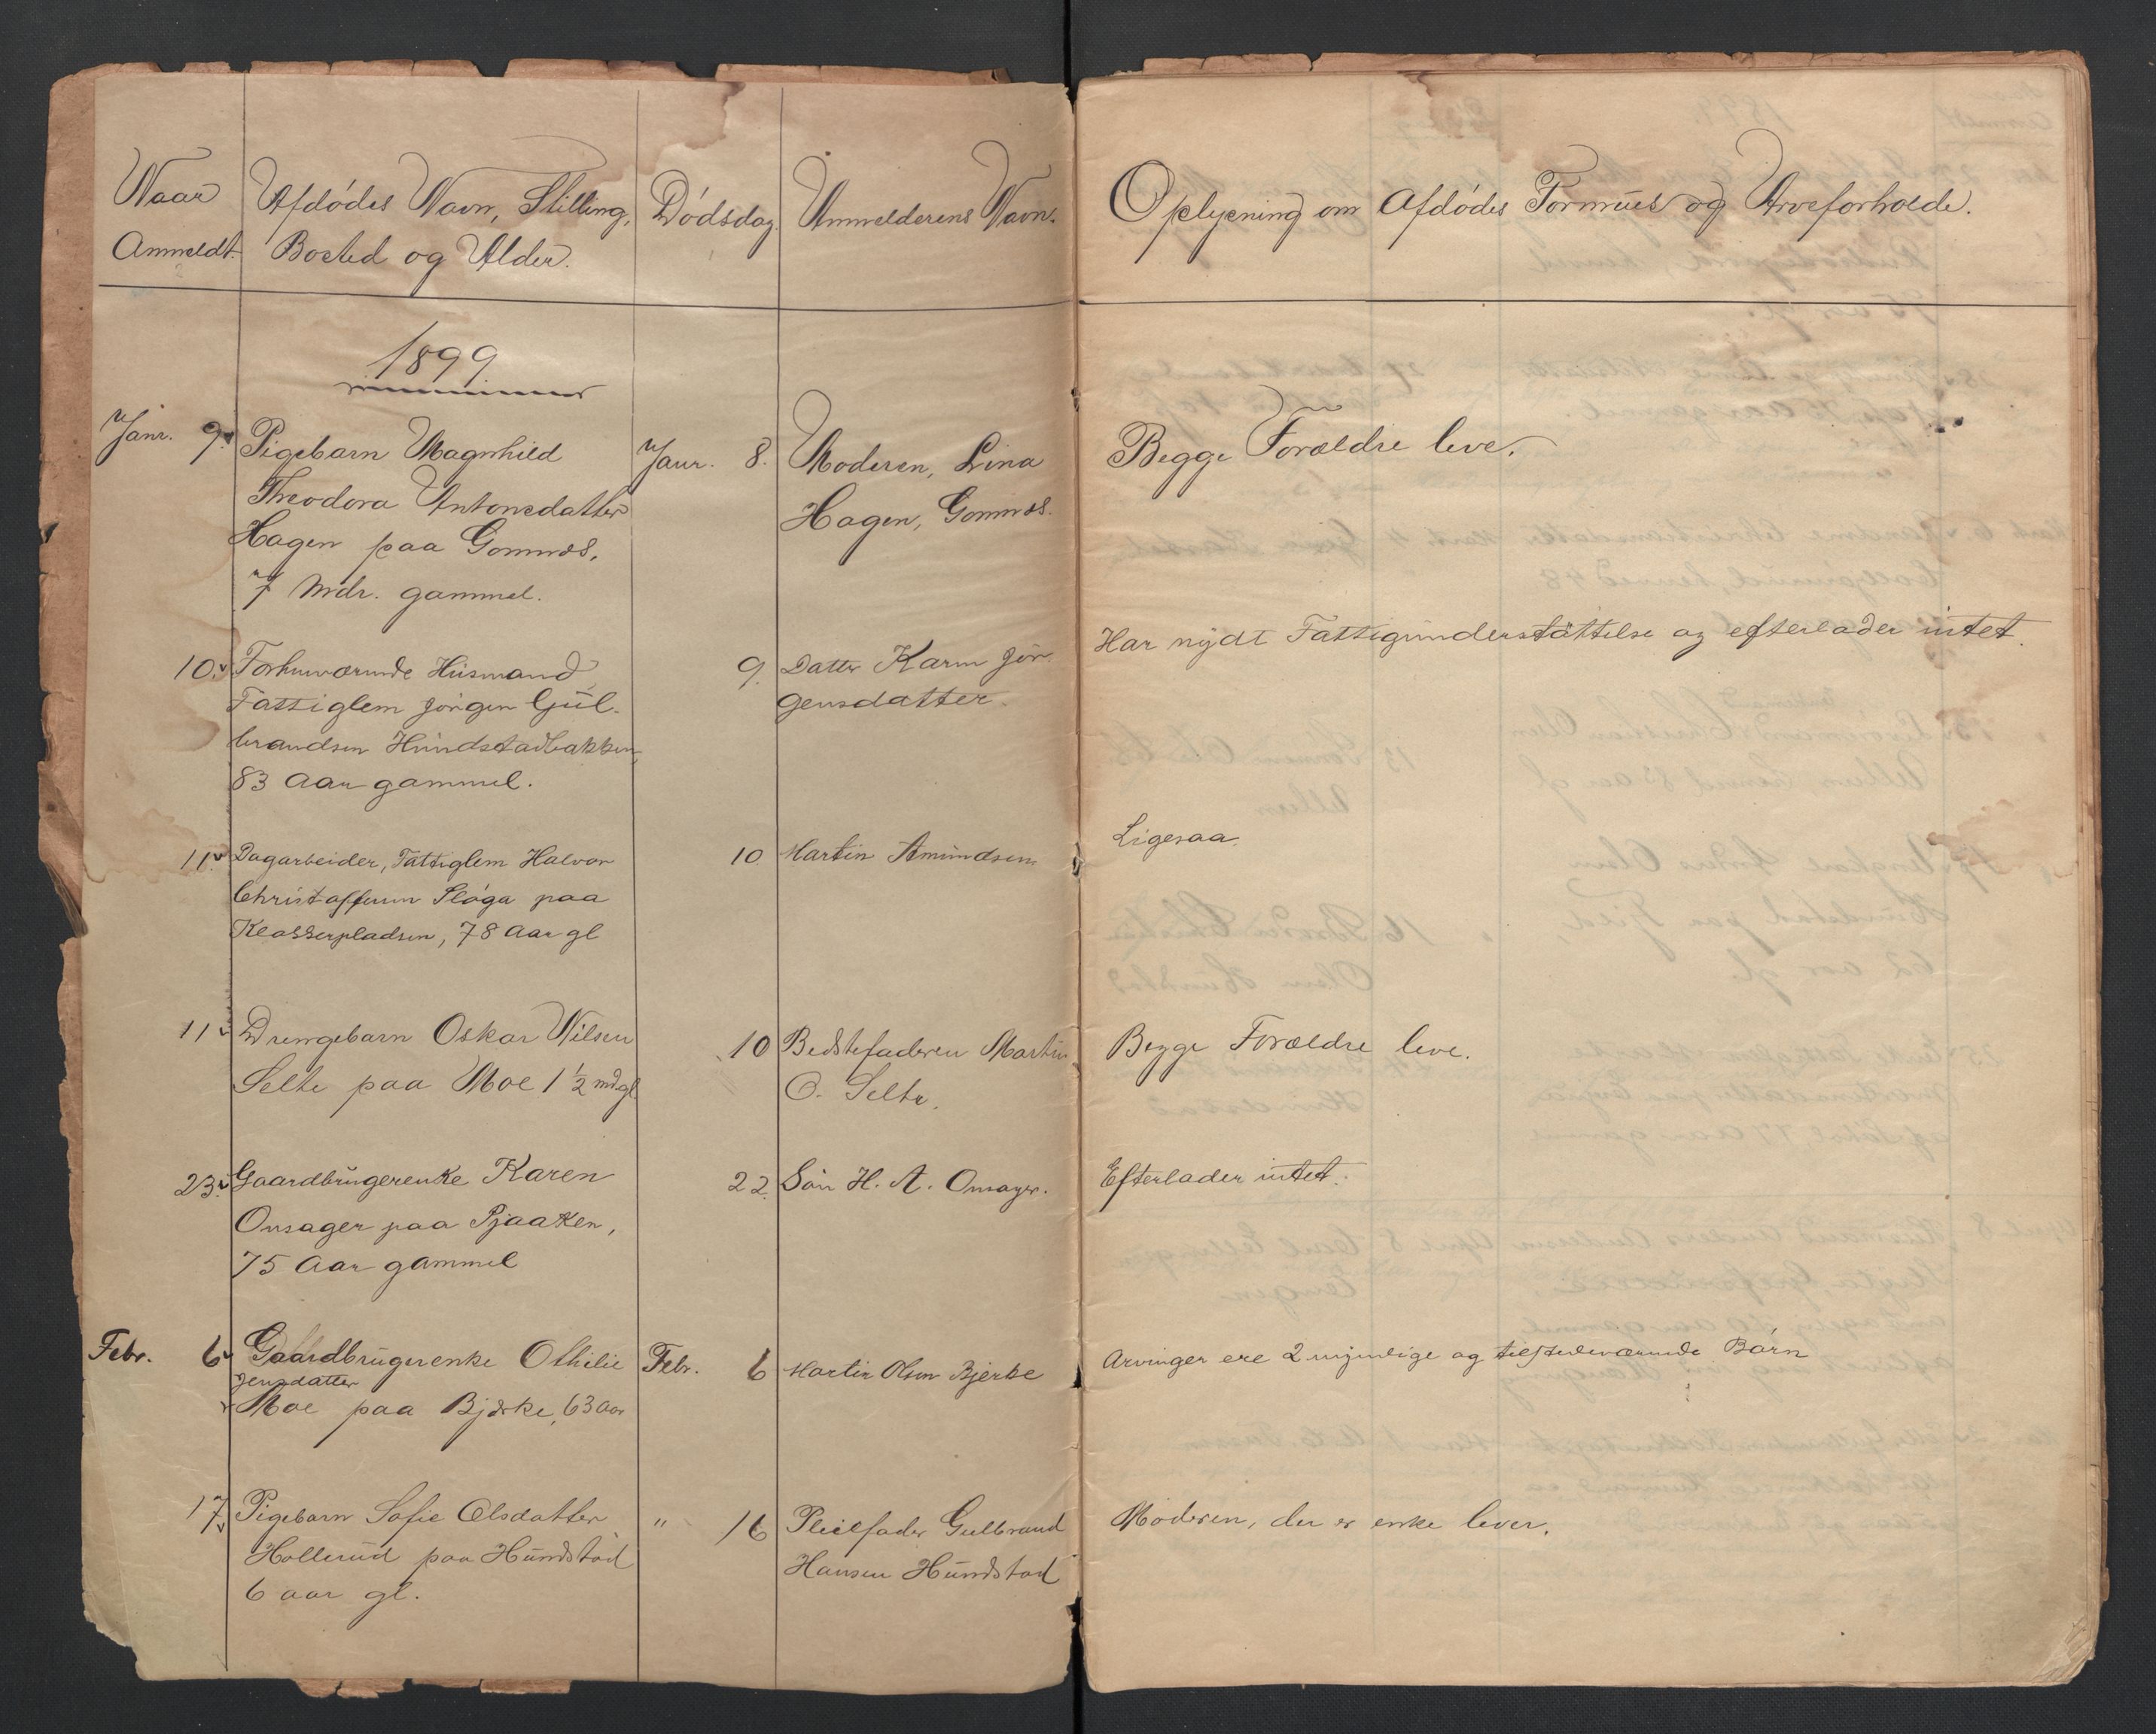 Naar
Anmeldt.
Afdødes Navn, Stilling,
Bosted og Alder.
Dødsdag.
Anmelderens Navn.
Oplysning om Afdødes Formues og Arveforholde.
1899
Janr. 9. Pigebarn Magnhild Janr. 8. Moderen, Lina Begge Forældre leve.
Theodora Antonsdatter Hagen, Gomnes.
Hagen paa Gomnes,
7 Mdr. gammel.
10. Forhenværende Husmand, 9. Datter Karen Jør- Har nydt Fattigunderstøttelse og efterlader intet.
Fattiglem Jørgen Gul- gensdatter.
brandsen Hundstadbakken,
83 Aar gammel.
11. Dagarbeider, Fattiglem Halvor 10. Martin Amundsen Ligesaa.
Christoffersen Sløga paa
Klosserpladsen, 78 Aar gl
11 Drengebarn Oskar Nilsen 10 Bedstefaderen Martin Begge Forældre leve.
Selte paa Moe 1 1/2 md gl. O. Selte.
23. Gaardbrugerenke Karen 22. Søn H. A. Onsager. Efterlader intet.
Onsager paa Pjaaken,
75 Aar gammel
Febr. 6 Gaardbrugerenke Othilie Febr. 6 Martin Olsen Bjerke Arvinger ere 2 myndige og tilstedeværende Børn
Jensdatter
Moe paa Bjerke, 63 Aar
17. Pigebarn Sofie Olsdatter " 16 Pleiefader Gulbrand Moderen, der er enke lever.
Hollerud paa Hundstad Hansen Hundstad
6 aar gl.